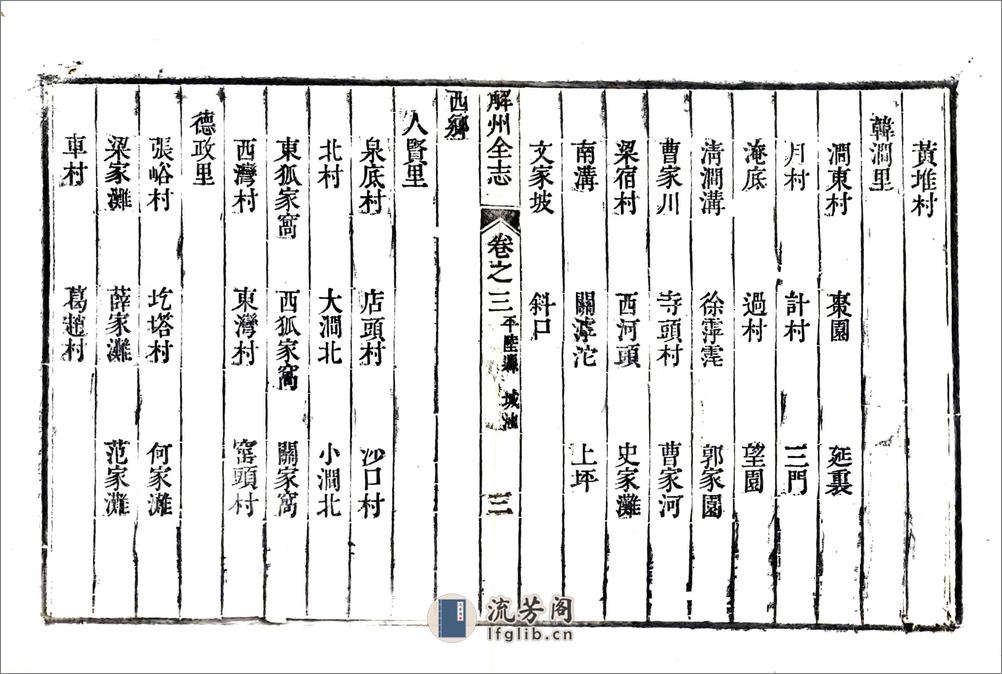 黃堆村
韓澗里
澗東村　棗園　延裏
月村　計村　三門
淹底　過村　望園
清澗溝　徐霈霮　郭家園
曹家川　寺頭村　曹家河
梁宿村　西河頭　史家灘
南溝　關滹沱　上坪
文家坡　斜口
解州全志　卷之三　平陸縣　城池　三
西鄉
人賢里
泉底村　店頭村　沙口村
北村　大澗北　小澗北
東狐家窩　西狐家窩　關家窩
西灣村　東灣村　窑頭村
德政里
張峪村　圪塔村　何家灘
梁家灘　薛家灘　范家灘
車村　葛趙村
流芳阁
lfglib.cn